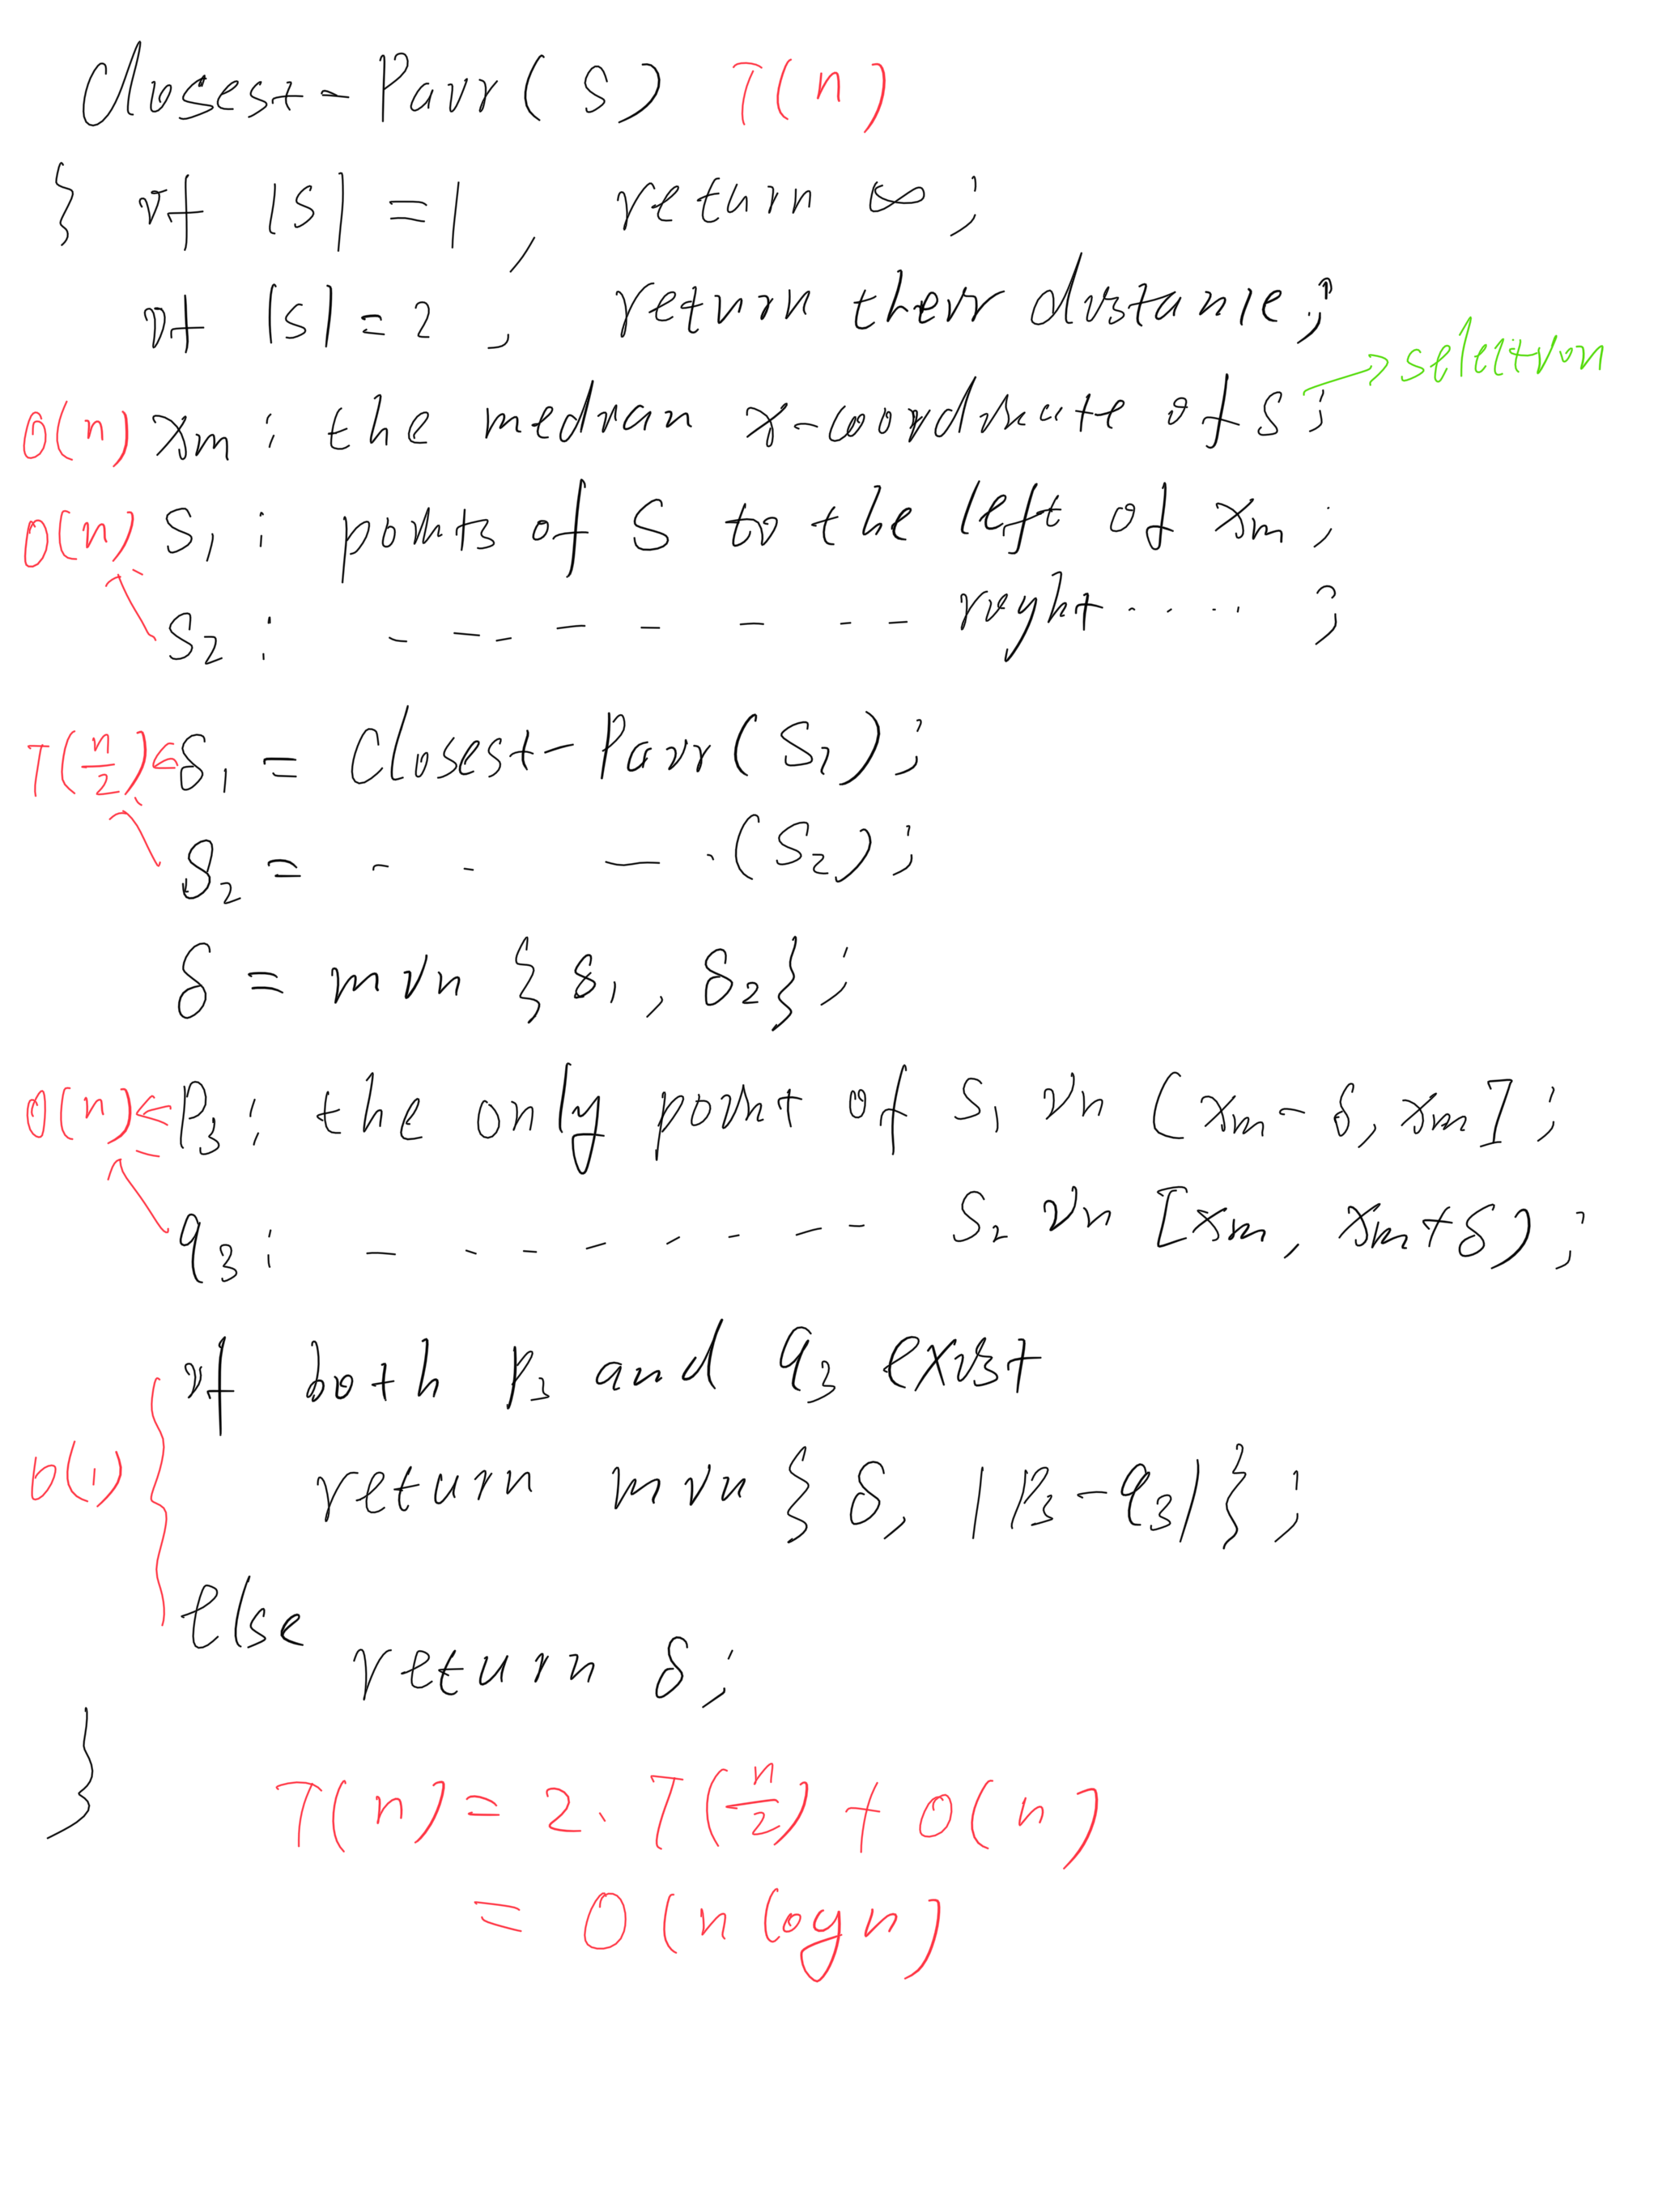 Closest-Pair(S) T(n)
{ if |S|=1, return ∞;
if |S|=2, return their distance;
→ selection
O(n) xm : the median x-coordinate of S;
O(n) S1 : points of S to the left of xm ;
S2 : - - - - - - - - right . . . . ;
T(n/2) ← δ1 = Closest-Pair(S1);
δ2 = - - - - (S2);
δ = min {δ1, δ2};
O(n) ← P3 : the only point of S1 in (xm-δ, xm];
q3 : - - - - - - - - S2 in [xm, xm+δ) ;
if both P3 and q3 exist
O(1) return min {δ, |P3-q3|};
else
return δ;
}
T(n) = 2·T(n/2) + O(n)
= O(n log n)